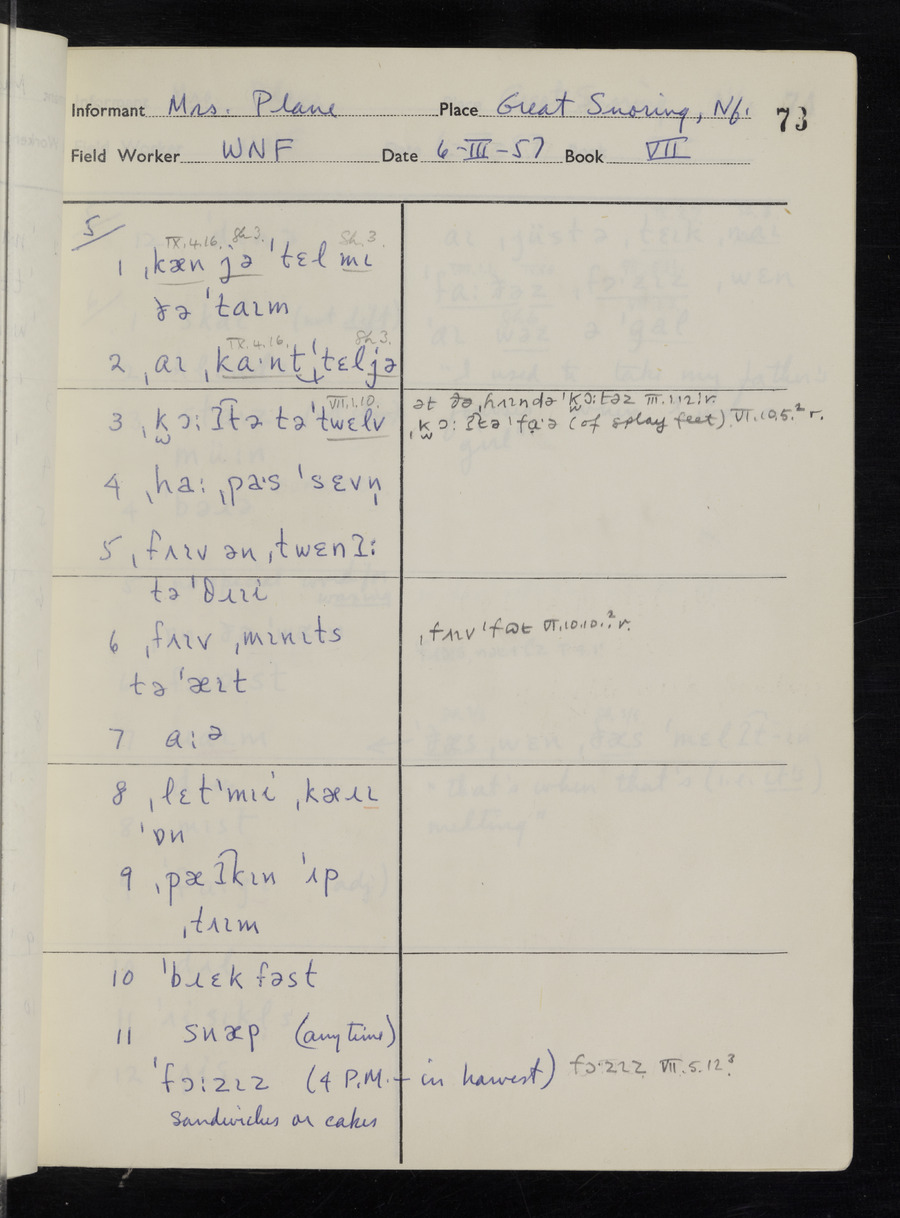 Informant Mrs. Plane Place Great Snoring, Nf. 73
Field Worker WNF Date 6-III-57 Book VII
5/
IX.4.16. Sh.3. Sh.3.
1 ˌkæn jə ˈtɛl mɪ
ðə ˈtaɪm
IX.4.16. Sh.3.
2 ˌaɪ ˌkaˑnt ˈtɛl jə
VII.1.10.
3 ˌkɔːʔtə təˈtwɛlv
ət ðə ˌhʌɪndə ˈkɔːtəz III.1.12ir.
ˌkɔːʔtə ˈfaˑə (of splay feet) VI.10.5.² r.
4 ˌhaː ˌpaˑs ˈsɛvn̩
5 ˌfʌɪv ən ˌtwɛnʔiː
tə ˈθɹɪi
6 ˌfʌɪv ˌmɪnɪts
tə ˈæɪt
ˌfʌɪv ˈfʊt VI.10.10.² r.
7 aːə
8 ˌlɛt ˈmɪi ˌkæɹɪ
ˈɒn
9 ˌpæʔkɪn ˈɪp
ˌtʌɪm
10 ˈbɹɛkfəst
11 snæp (any time)
ˈfɔːzɪz (4 P.M. – in harvest) fɔːzɪz VII.5.12³
sandwiches or cakes